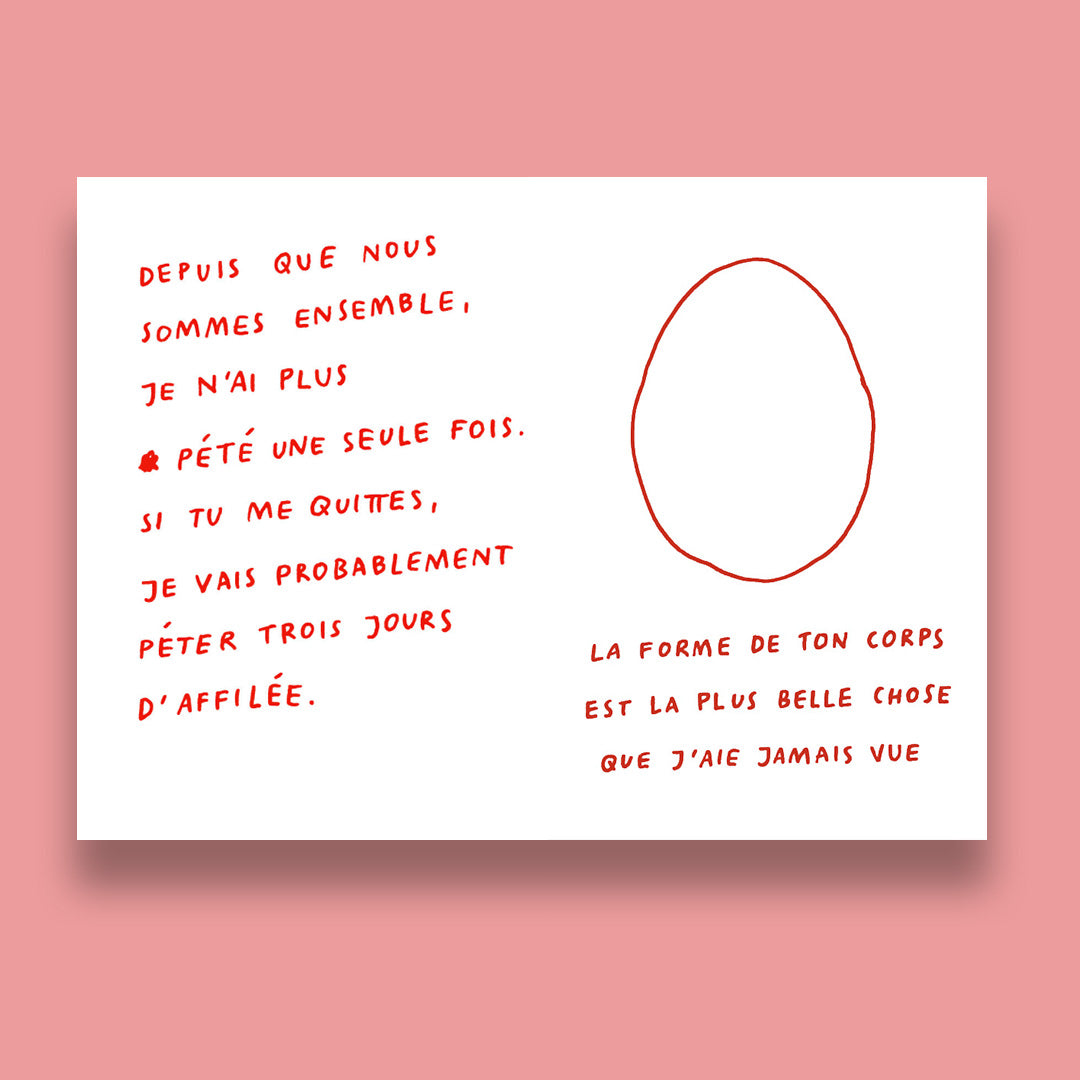 DEPUIS QUE NOUS
SOMMES ENSEMBLE,
JE N'AI PLUS
PÉTÉ UNE SEULE FOIS.
SI TU ME QUITTES,
JE VAIS PROBABLEMENT
PÉTER TROIS JOURS
D'AFFILÉE.
LA FORME DE TON CORPS
EST LA PLUS BELLE CHOSE
QUE J'AIE JAMAIS VUE